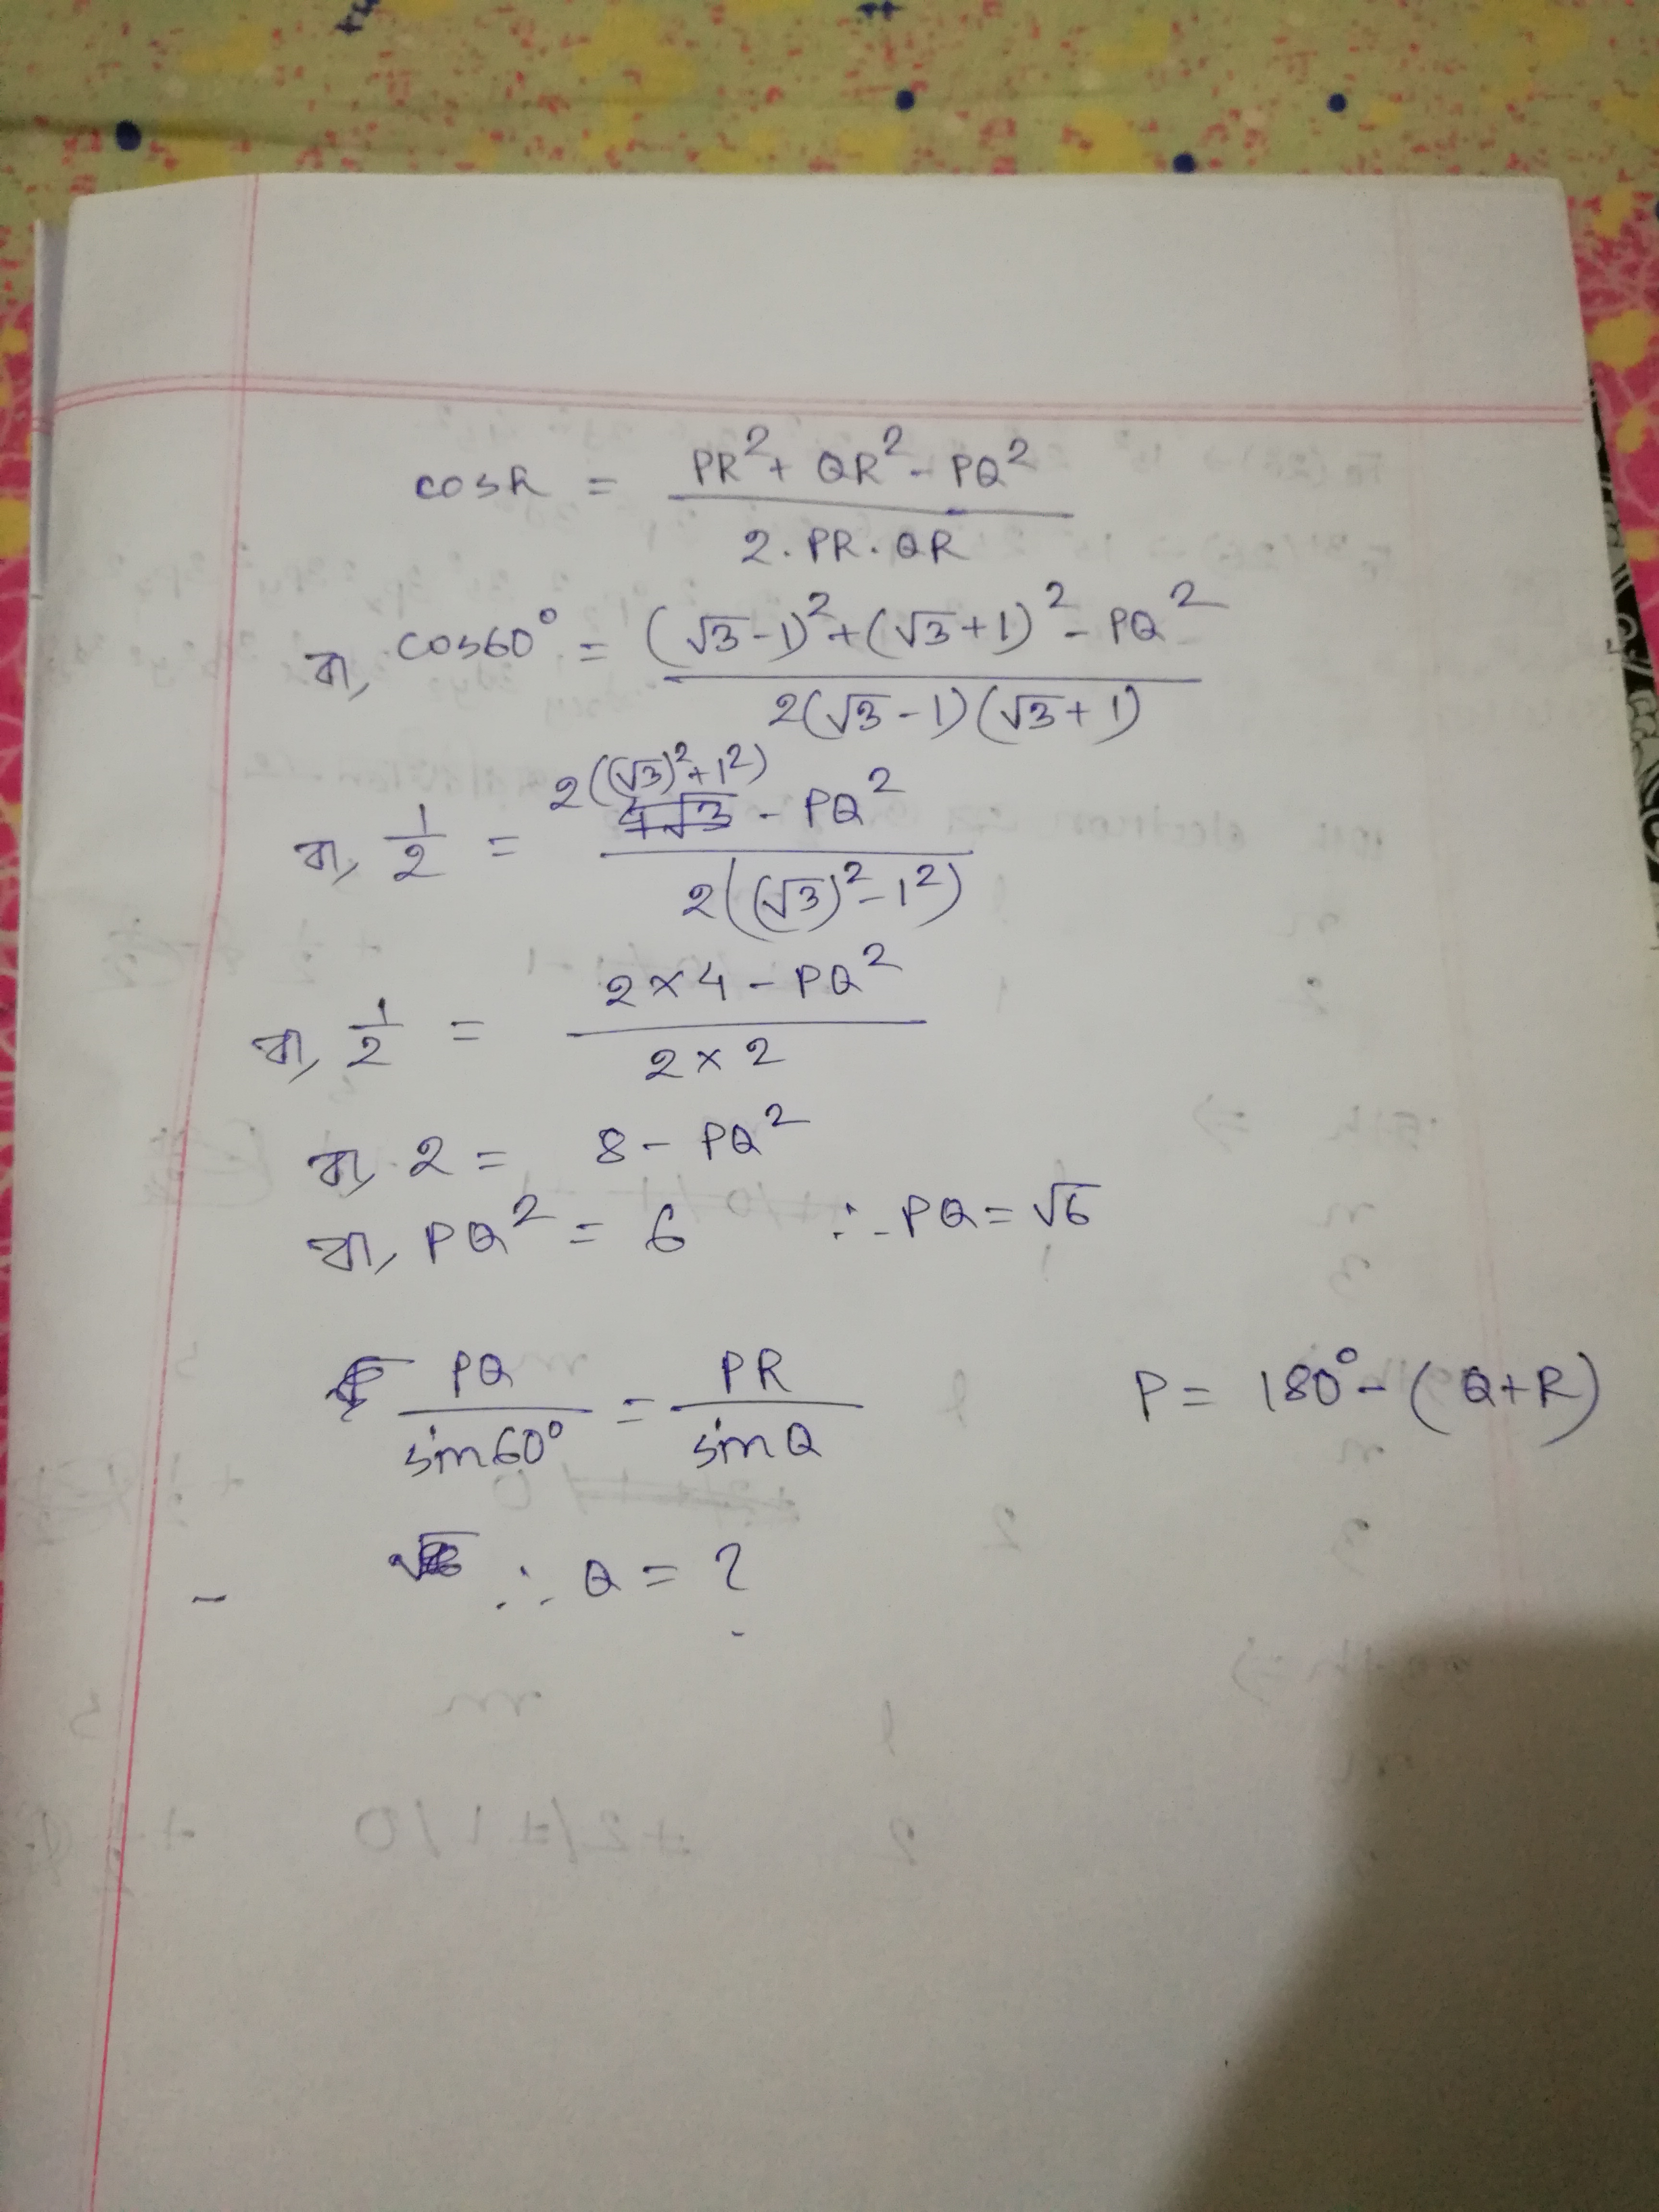 cosR = PR² + QR² - PQ² / 2 . PR . QR
বা, cos60° = (√3-1)² + (√3+1)² - PQ² / 2(√3-1)(√3+1)
বা, 1/2 = 2((√3)²+1²) - PQ² / 2((√3)²-1²)
বা, 1/2 = 2×4 - PQ² / 2×2
বা, 2 = 8 - PQ²
বা, PQ² = 6 ∴ PQ = √6
PQ / sin60° = PR / sinQ P = 180° - (Q+R)
∴ Q = ?